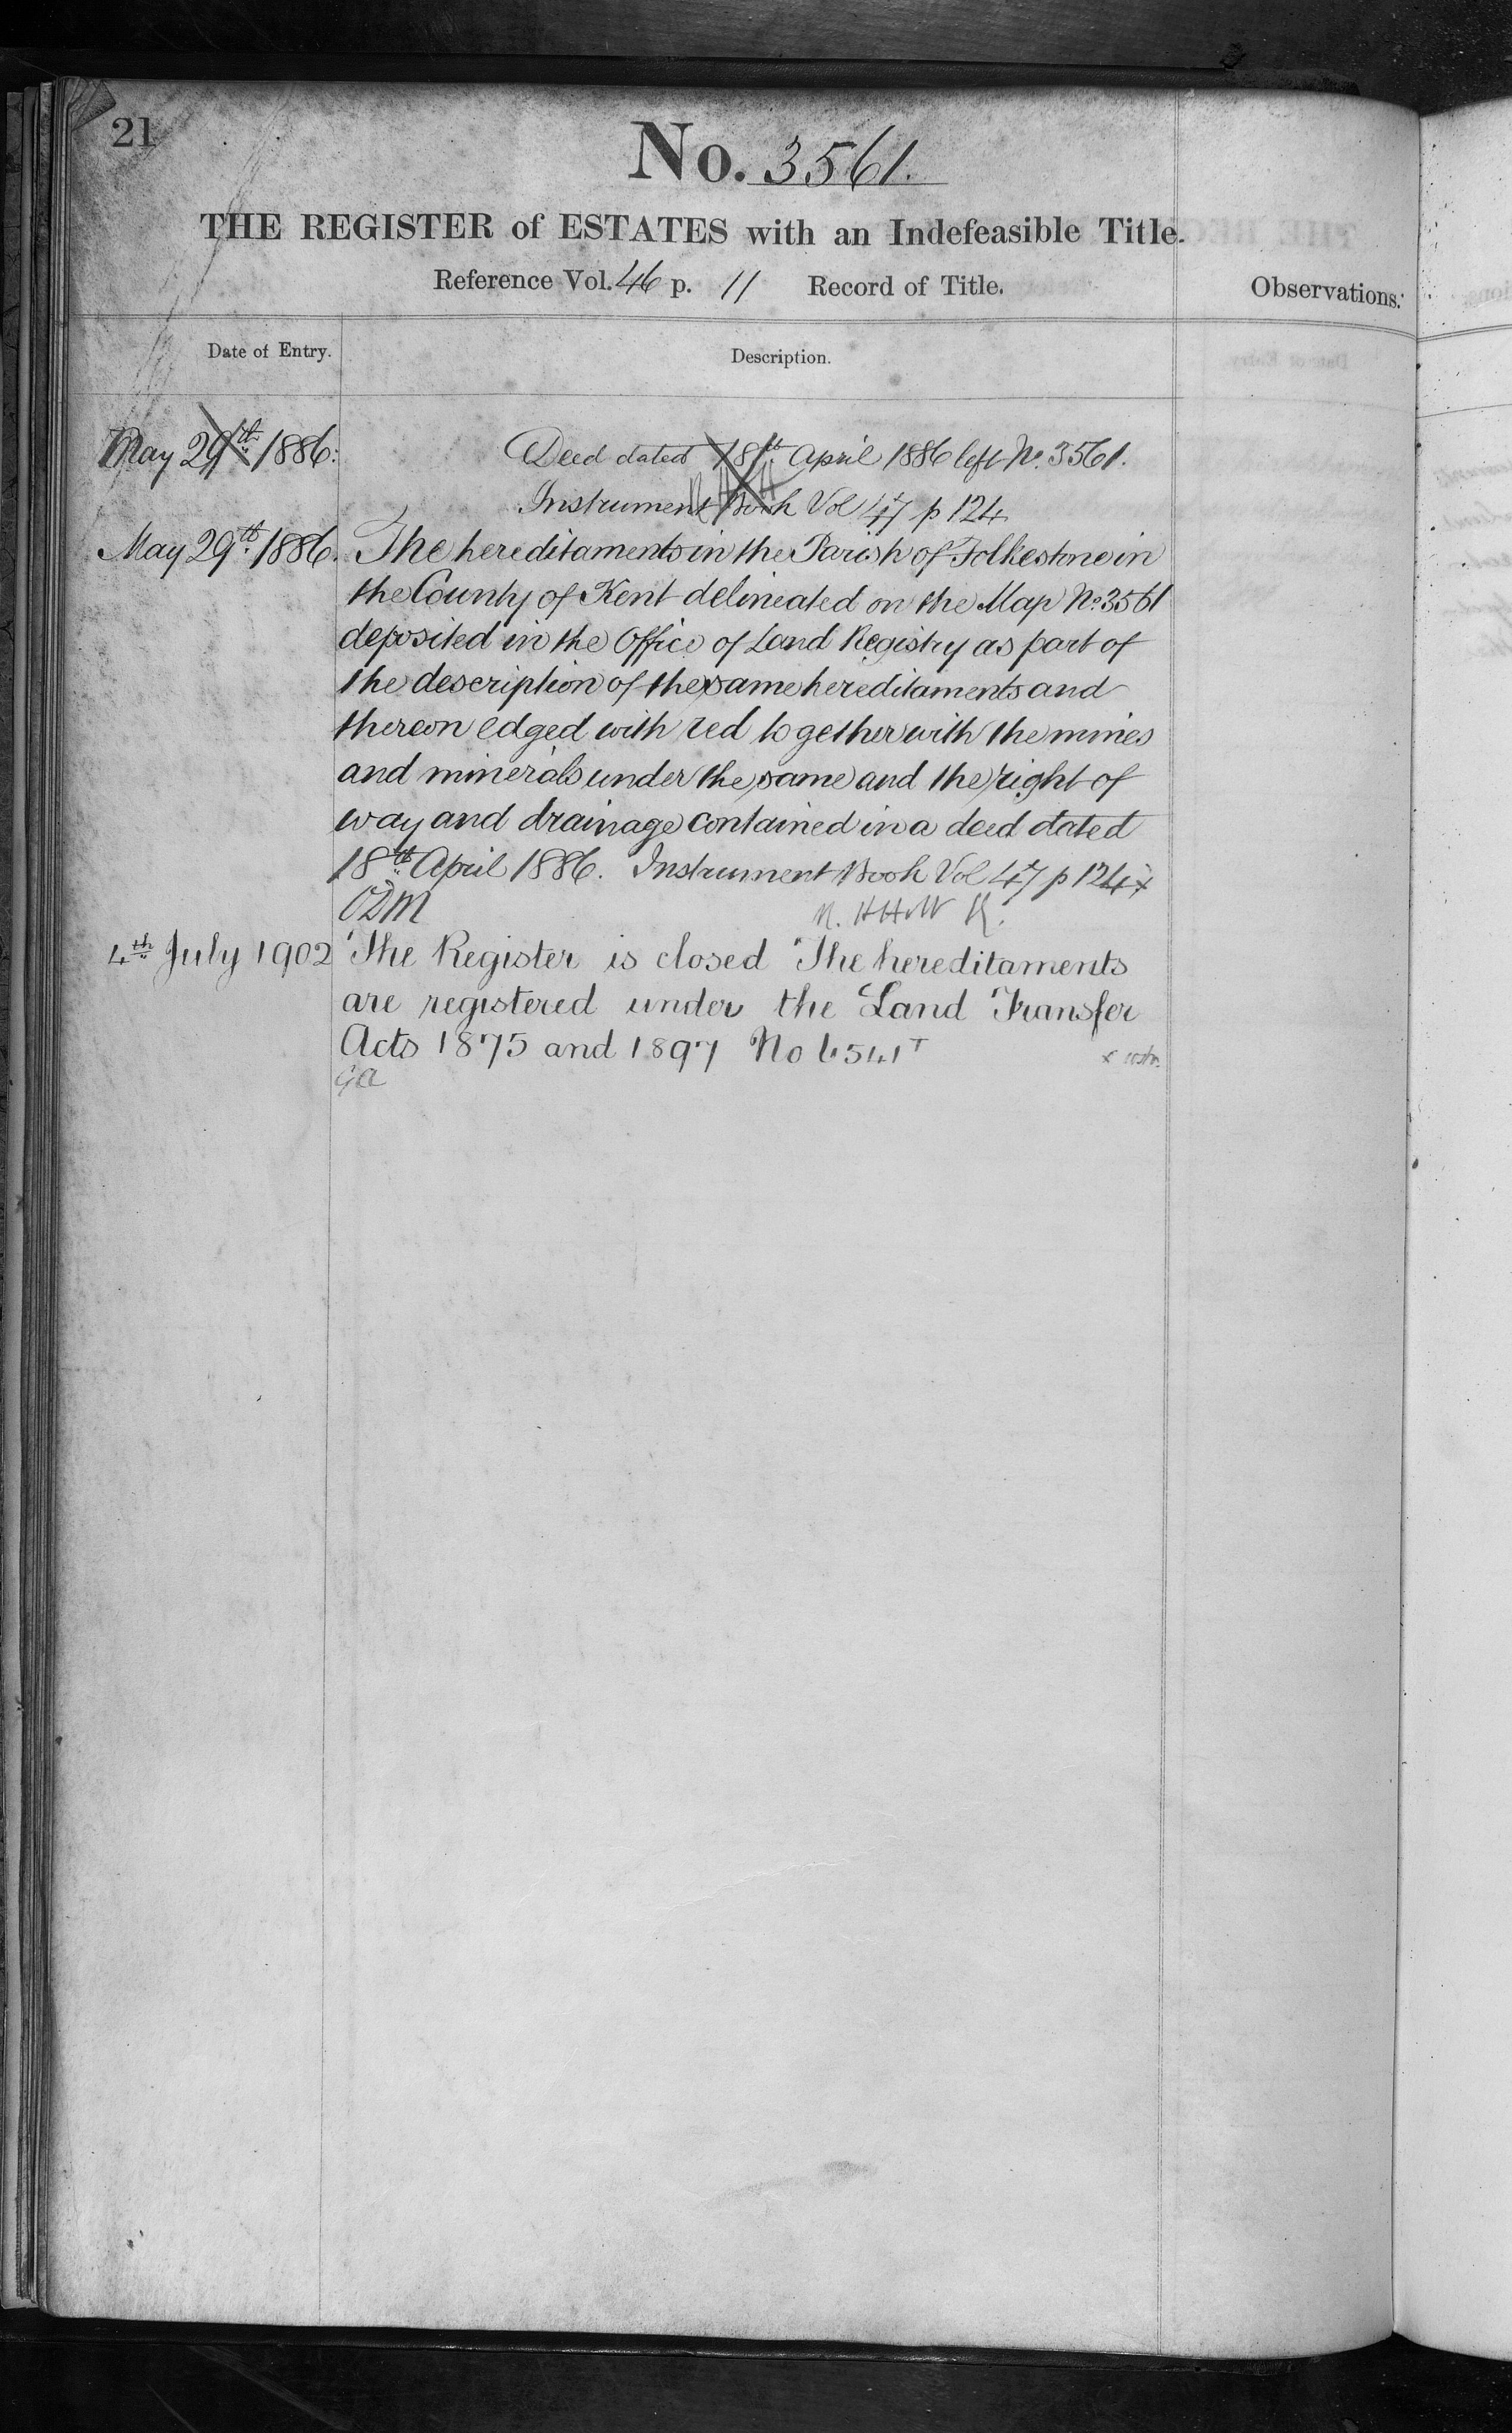 21
No. 3561.
THE REGISTER of ESTATES with an Indefeasible Title.
Reference Vol. 46 p. 11 Record of Title.
Observations.
Date of Entry.
Description.
May 29th 1886.
Deed dated 18th April 1886 left No. 3561.
Instrument Book Vol 47 p 124
May 29th 1886.
The hereditaments in the Parish of Folkestone in
the County of Kent delineated on the Map No. 3561
deposited in the Office of Land Registry as part of
the description of the same hereditaments and
thereon edged with red together with the mines
and minerals under the same and the right of
way and drainage contained in a deed dated
18th April 1886. Instrument Book Vol 47 p 124 x
ODM
4th July 1902
The Register is closed The hereditaments
are registered under the Land Transfer
Acts 1875 and 1897 No
GA